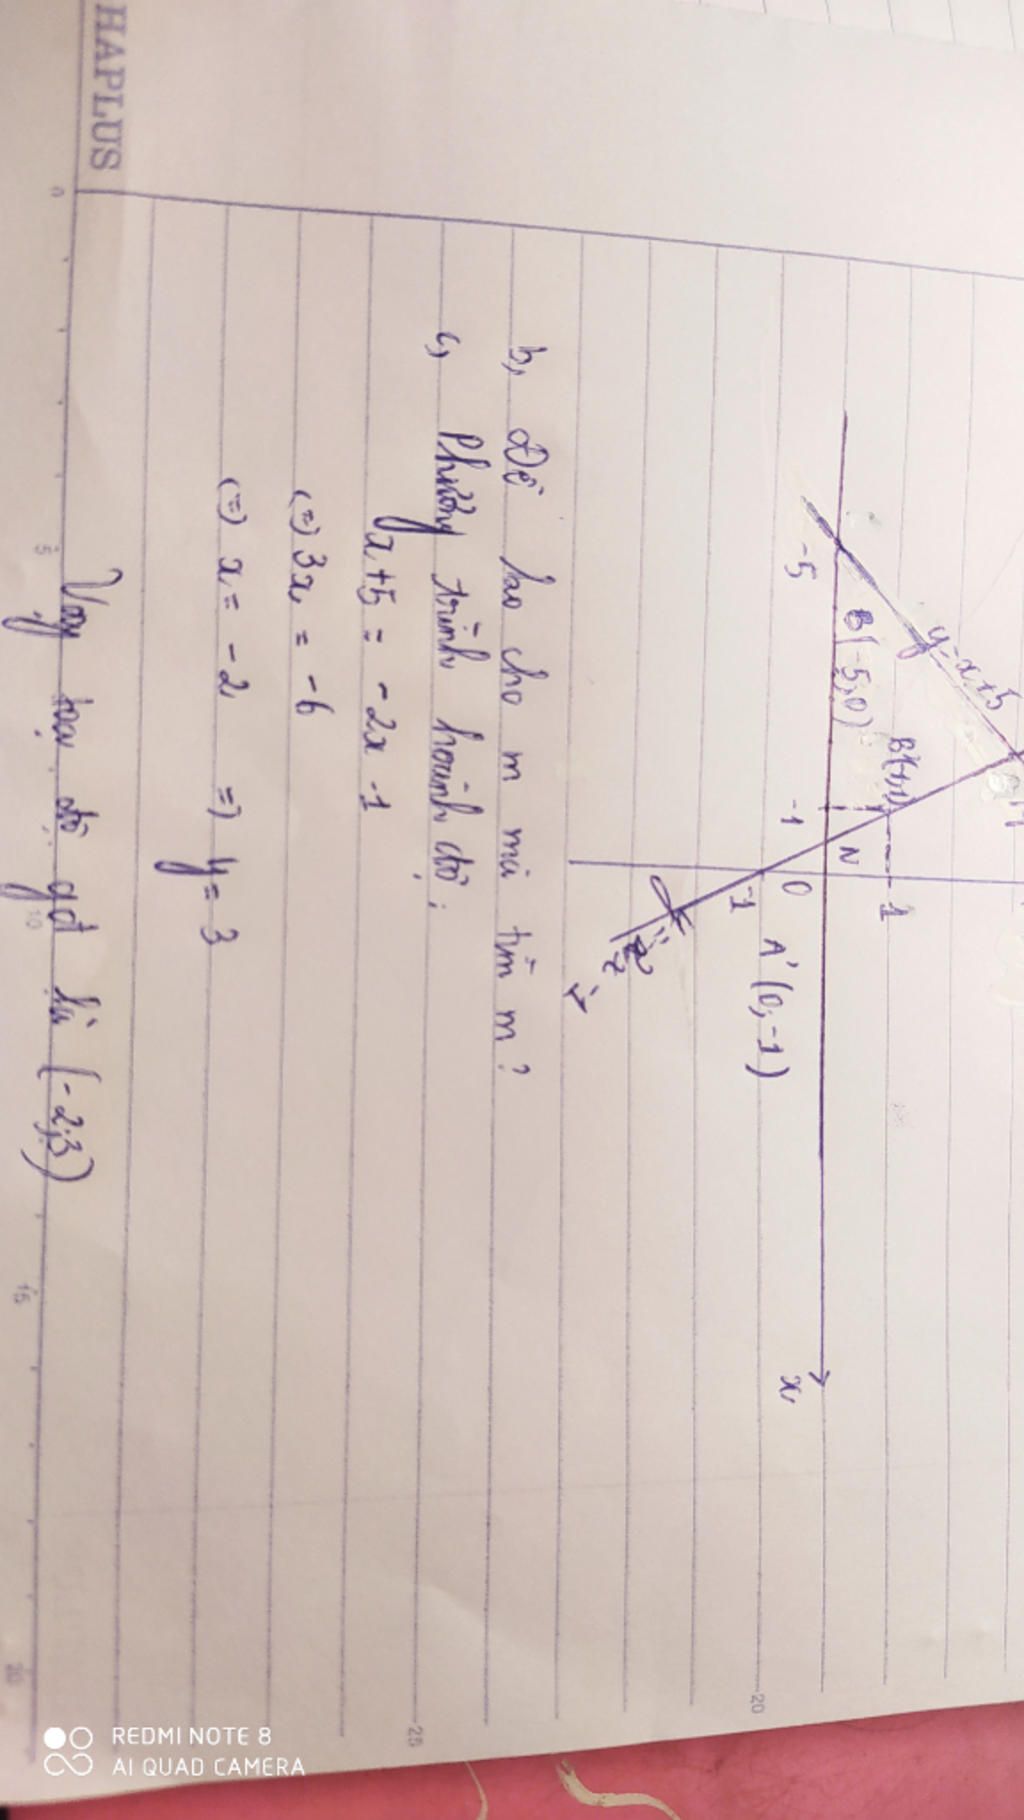 HAPLUS
y=x+5
B(-5;0)
-5
-1
N
1
O
-1
A'(0;-1)
x
b, Đề sao cho m mà tìm m?
c, Phương trình hoành độ:
x+5 = -2x-1
(=) 3x = -6
(=) x = -2 => y = 3
Vậy toạ độ gđ là (-2;3)
0
5
10
15
20
20
25
REDMI NOTE 8
AI QUAD CAMERA